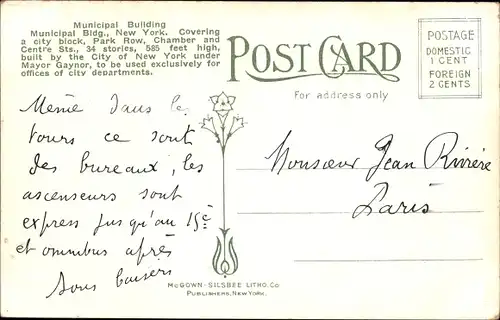 Municipal Building
Municipal Bldg., New York. Covering
a city block, Park Row, Chamber and
Centre Sts., 34 stories, 585 feet high,
built by the City of New York under
Mayor Gaynor, to be used exclusively for
offices of city departments.
POST CARD
For address only
POSTAGE
DOMESTIC
1 CENT
FOREIGN
2 CENTS
Même dans les
tours ce sont
des bureaux, les
ascenseurs sont
express jusqu'au 15e
et omnibus après
Bons baisers
Monsieur Jean Rivière
Paris
McGOWN-SILSBEE LITHO. Co
PUBLISHERS, NEW YORK.